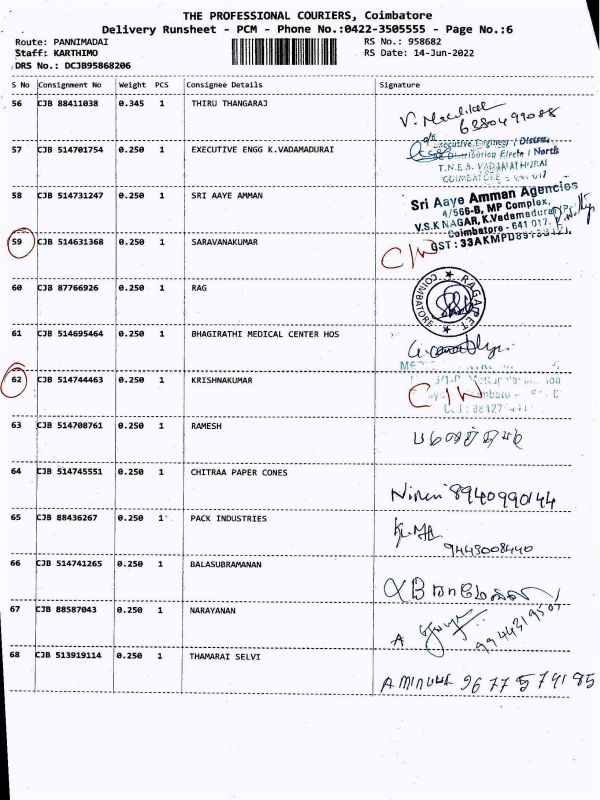 THE PROFESSIONAL COURIERS, Coimbatore
Delivery Runsheet - PCM - Phone No.:0422-3505555 - Page No.:6
Route: PANNIMADAI
RS No.: 958682
Staff: KARTHIMO
RS Date: 14-Jun-2022
DRS No.: DCJB95868206
S No Consignment No Weight PCS Consignee Details Signature
56 CJB 88411038 0.345 1 THIRU THANGARAJ
6380499088
57 CJB 514701754 0.250 1 EXECUTIVE ENGG K.VADAMADURAI
Executive Engineer / Distrn.
Distribution Circle / North
58 CJB 514731247 0.250 1 SRI AAYE AMMAN
Sri Aaye Amman Agencies
4/566-B, MP Complex,
V.S.K NAGAR, K.Vadamadurai
Coimbatore - 641 017.
59 CJB 514631368 0.250 1 SARAVANAKUMAR
C/W
60 CJB 87766926 0.250 1 RAG
COIMBATORE
61 CJB 514695464 0.250 1 BHAGIRATHI MEDICAL CENTER HOS
62 CJB 514744463 0.250 1 KRISHNAKUMAR
C/W
63 CJB 514708761 0.250 1 RAMESH
64 CJB 514745551 0.250 1 CHITRAA PAPER CONES
8940990144
65 CJB 88436267 0.250 1 PACK INDUSTRIES
9443008440
66 CJB 514741265 0.250 1 BALASUBRAMANAN
67 CJB 88587043 0.250 1 NARAYANAN
68 CJB 513919114 0.250 1 THAMARAI SELVI
9677574185